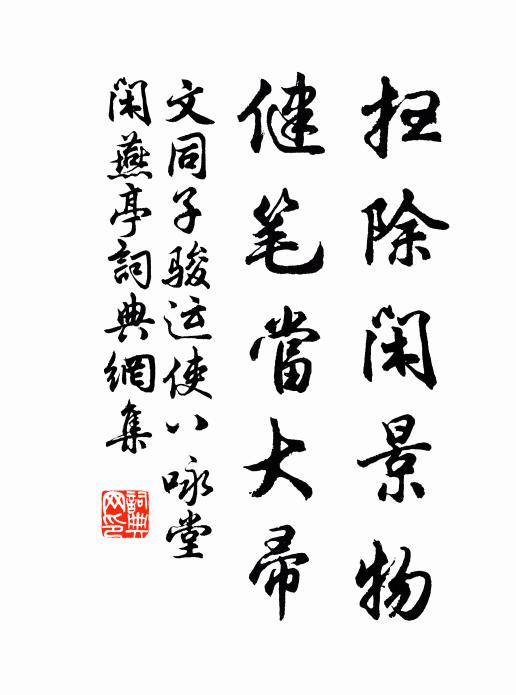 扫除闲景物
健笔當大帚
文同子骏运使八咏堂
闲燕亭詞典網集
詞典网印